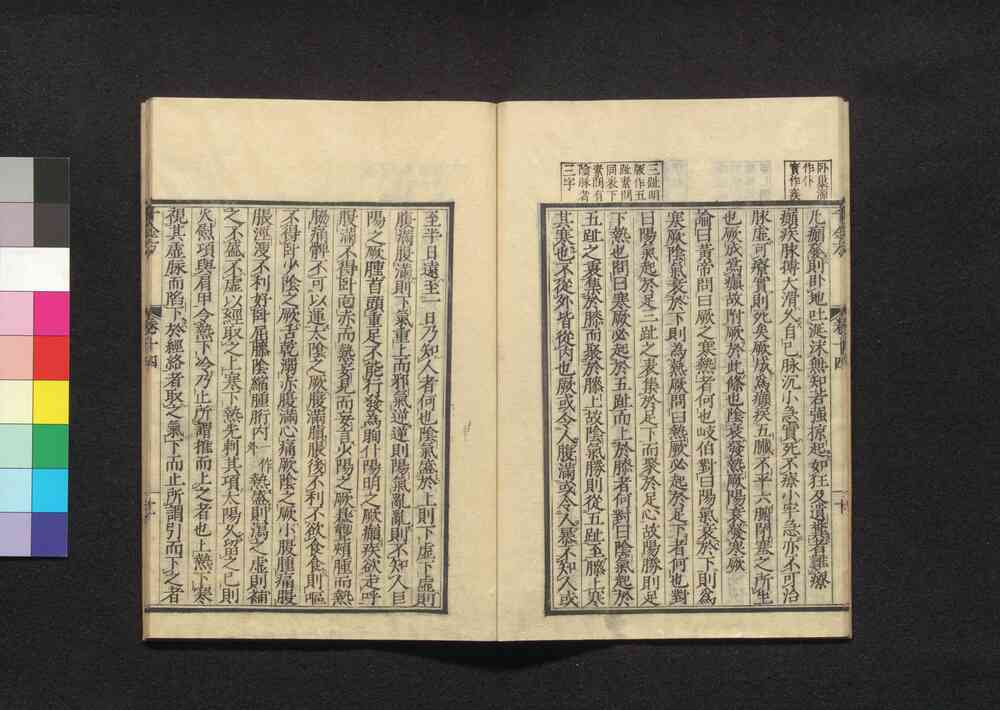 卧巢源
作仆
實作疾
凡癲發則卧地吐涎沫無知若強掠起如狂及遺糞者難療
癲疾脉搏大滑久自已脉沉小急實死不療小牢急亦不可治
脉虛可療實則死矣厥成為癲疾五臟不平六腑閉塞之所生
也厥成為癲故附厥於此條也陰衰發熱厥陽衰發寒厥
論曰黄帝問曰厥之寒熱者何也岐伯對曰陽氣衰於下則為
寒厥陰氣衰於下則為熱厥問曰熱厥必起於足下者何也對
三趾明
版作五
趾素問
同表下
素問有
陰脉者
三字
曰陽氣起於足三趾之表集於足下而聚於足心故陽勝則足
下熱也問曰寒厥必起於五趾而上於膝者何對曰陰氣起於
五趾之裏集於膝而聚於膝上故陰氣勝則從五趾至膝上寒
其寒也不從外皆從内也厥或令人腹滿或令人暴不知人或
至半日遠至一日乃知人者何也陰氣盛於上則下虛下虛則
腹滿腹滿則下氣重上而邪氣逆逆則陽氣亂亂則不知人巨
陽之厥腫首頭重足不能行發為眴仆陽明之厥癲疾欲走呼
腹滿不得卧面赤而熱妄見而妄言少陽之厥暴聾頰腫而熱
脇痛䯒不可以運太陰之厥腹滿䐜脹後不利不欲飲食食則嘔
不得卧少陰之厥舌乾溺赤腹滿心痛厥陰之厥小腹腫痛腹
脹涇溲不利好卧屈膝陰縮腫胻内一作外熱盛則瀉之虛則補
之不盛不虛以經取之上寒下熱先刺其項太陽久留之已則
火熨項與肩甲令熱下冷乃止所謂推而上之者也上熱下寒
視其虛脉而陷下於經絡者取之氣下而止所謂引而下之者